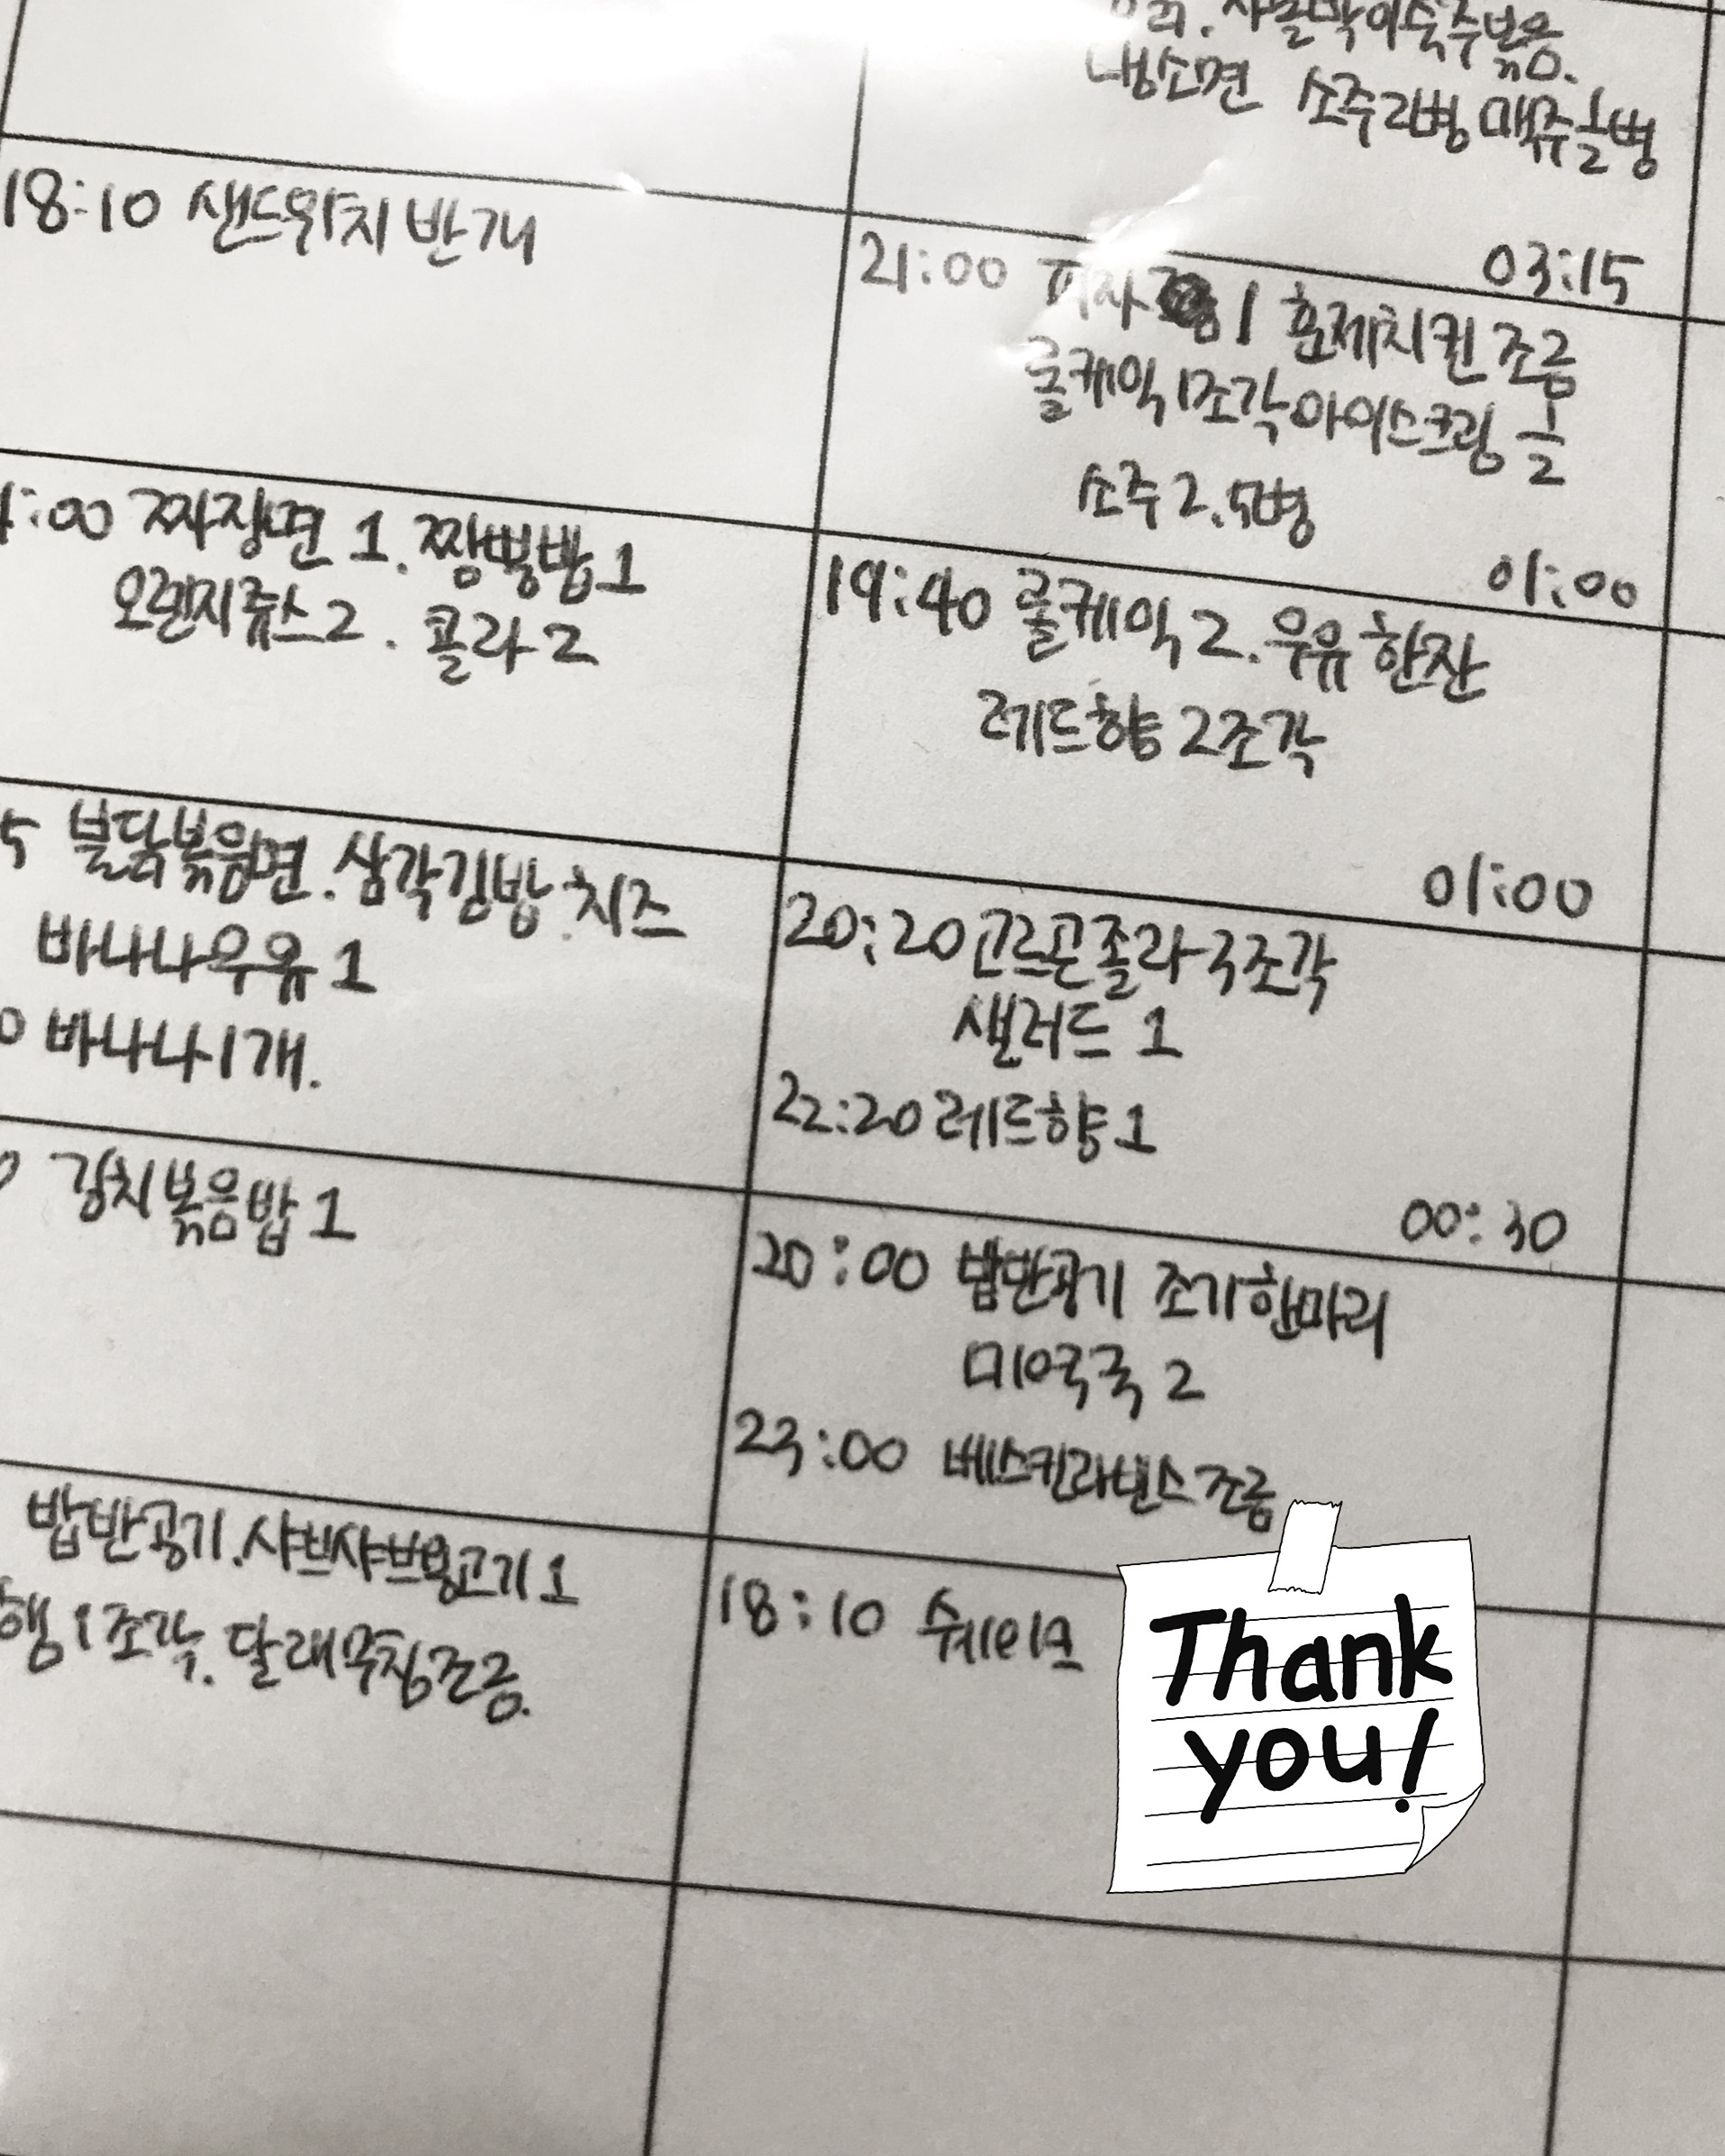 냉소면 소주2병 맥주1/2병
18:10 샌드위치 반개
03:15
21:00 피자 1 훈제치킨 조금
롤케익 1조각 아이스크림 1/2
소주 2.5병
:00 짜장면 1. 짬뽕밥 1
오렌지쥬스 2. 콜라 2
01:00
19:40 롤케익 2. 우유 한잔
레드향 2조각
5 불닭볶음면. 삼각김밥. 치즈
바나나우유 1
0 바나나 1개.
01:00
20:20 고르곤졸라 3조각
샐러드 1
22:20 레드향 1
0 김치볶음밥 1
00:30
20:00 밥반공기 조기한마리
미역국 2
23:00 베스킨라빈스 조금
밥반공기. 샤브샤브 고기 1
1조각. 달래무침조금.
18:10 쉐이크
Thank
you!